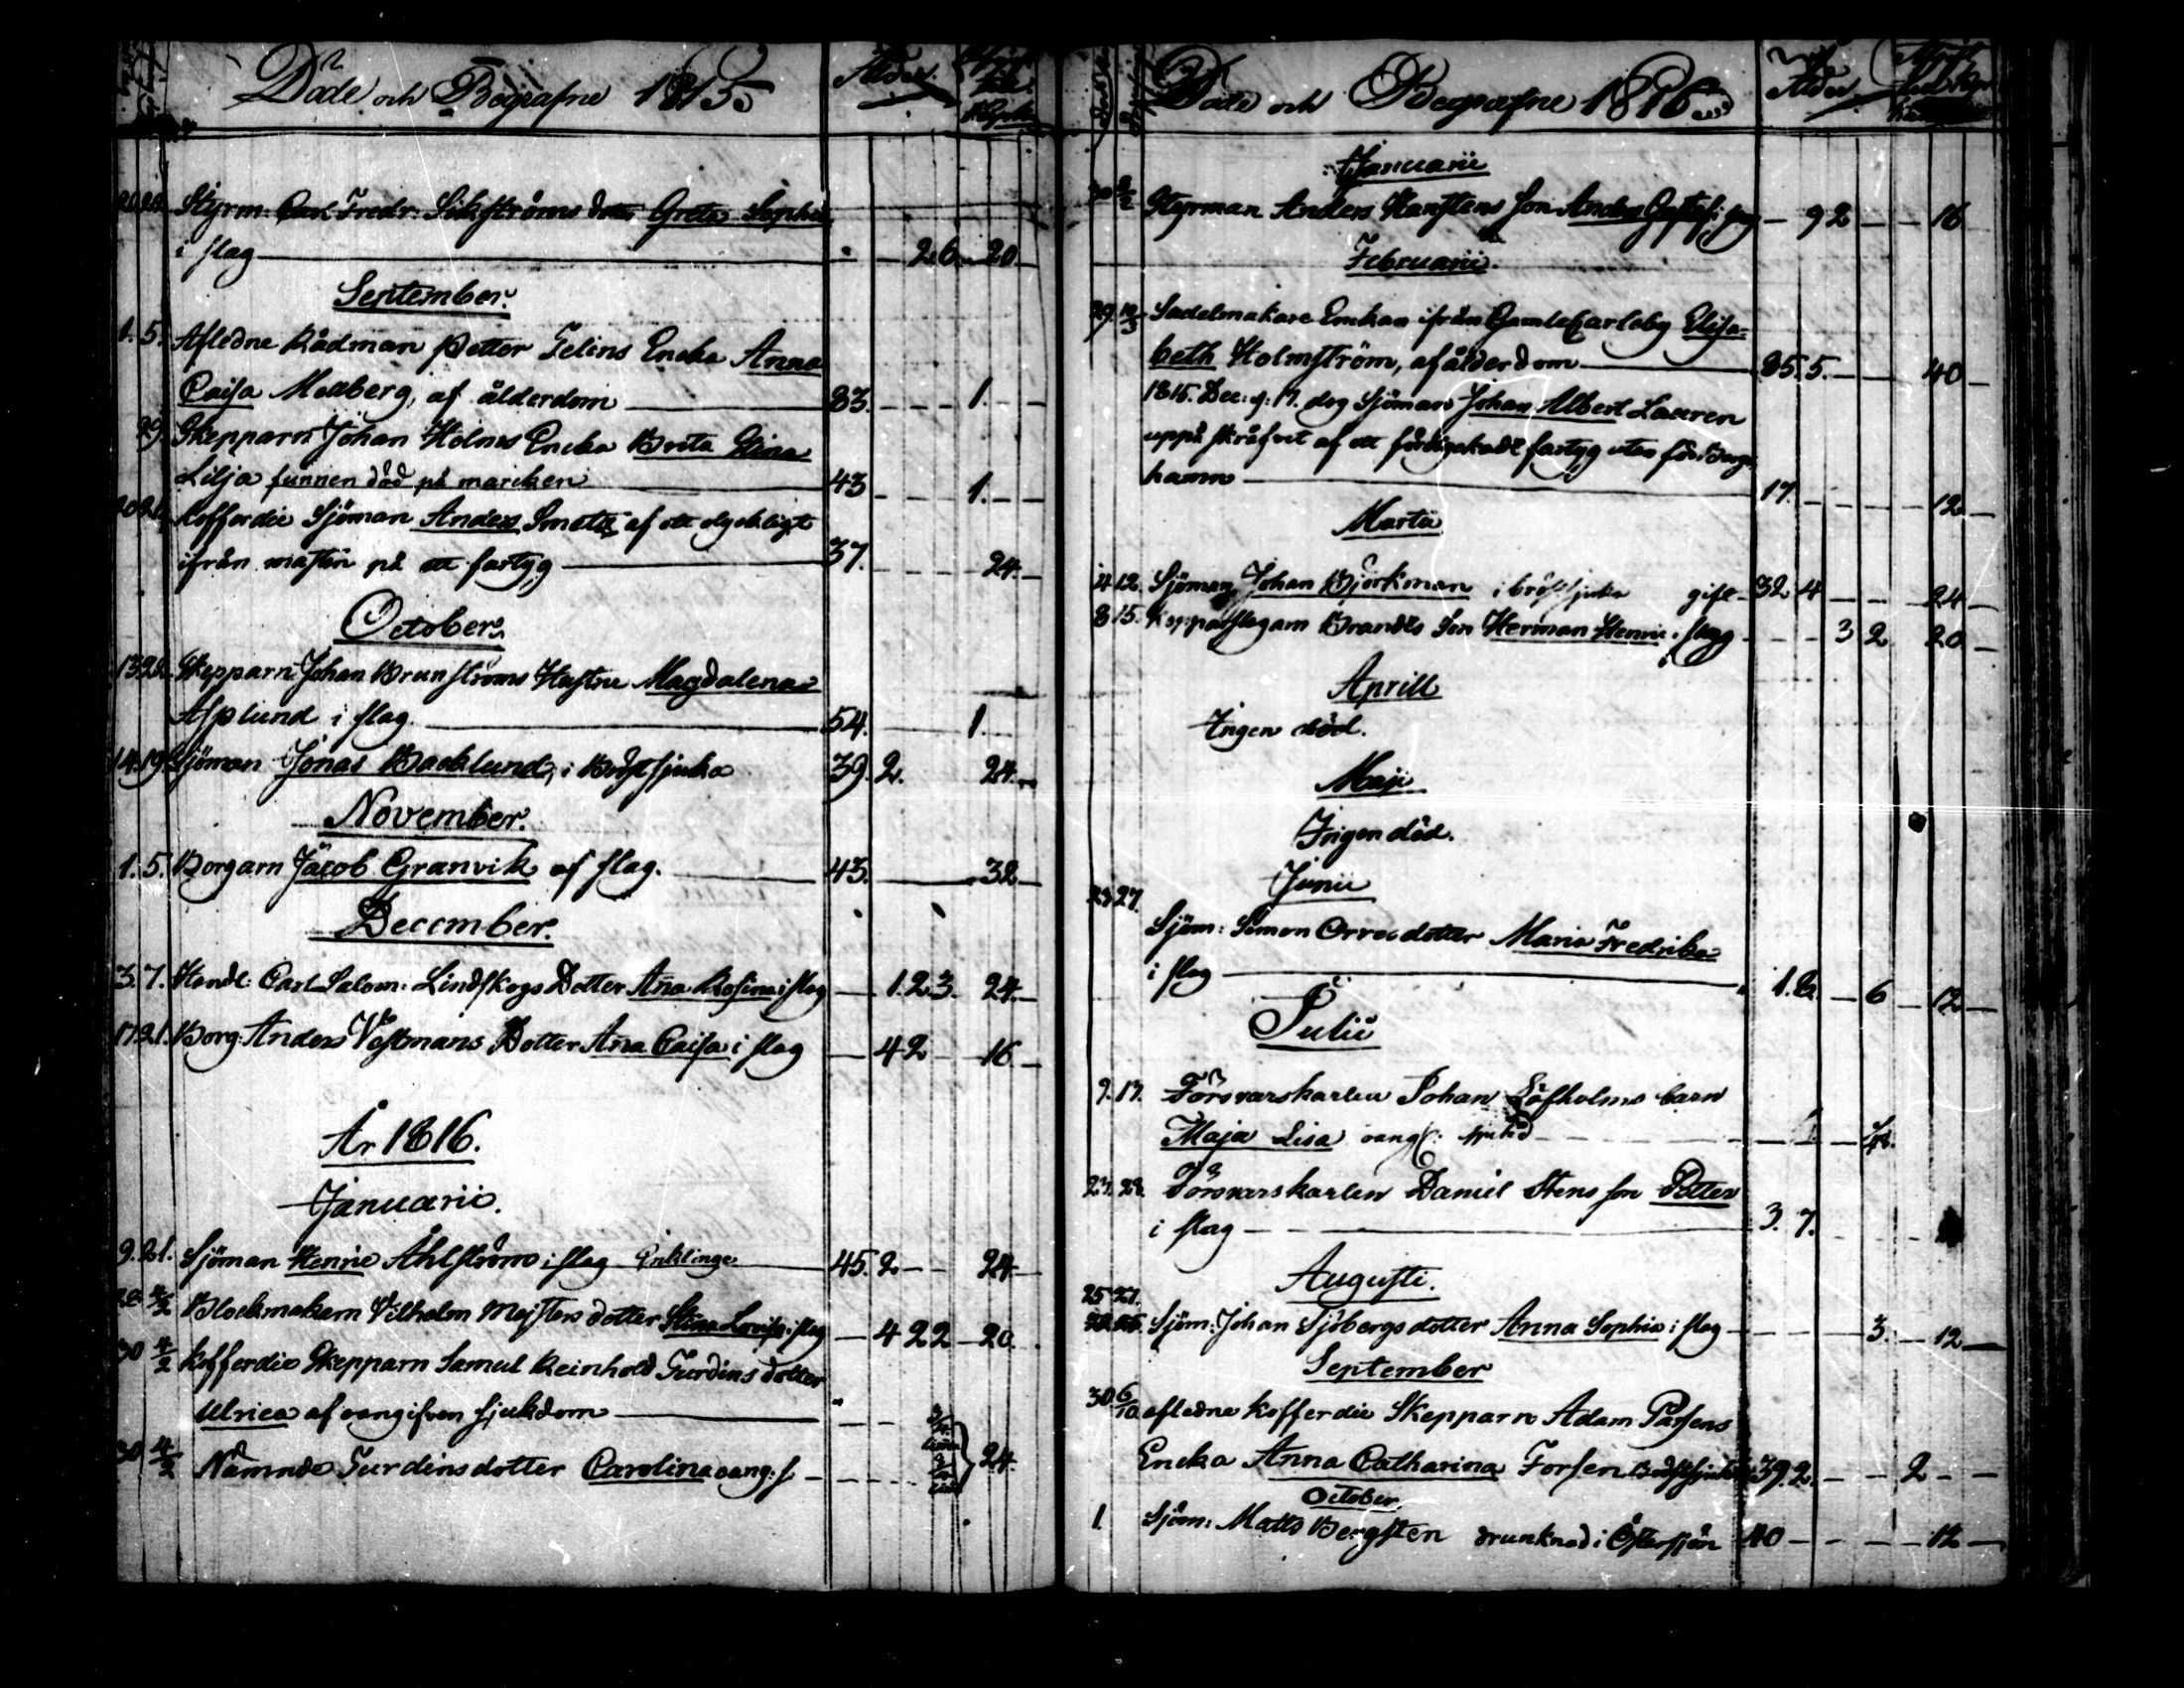 Döde och Begrafne 1815
Ålder
20. 22. Styrm: Carl Fredr: Sikströms dotter Greta Sophia
i slag 2 6 20
September.
1. 5. Afledne Rådman Petter Telins Encka Anna
Caisa Medberg, af ålderdom 83. 1.
29. Skepparn Johan Holms Encka Brita Stina
Lilja funnen död på marcken 43 1.
20 24 Kofferdie Sjöman Anders Smatt af ett olyckligt
ifrån masten på ett fartyg 37. 24.
October.
13 22. Skepparn Johan Brunströms Hustru Magdalena
Asplund i slag. 54. 1.
14. 19. Sjöman Jonas Backlund, i Bröstsjuka 39. 2. 24.
November.
1. 5. Borgarn Jacob Granvik af slag. 43. 32
December.
3. 7. Handl: Carl Salom: Lindskogs Dotter Aña Rosina i slag 1. 2 3. 24.
17 21. Borg: Anders Vestmans Dotter Aña Caisa i slag 4 2 16.
År 1816.
Januarii.
9. 21. Sjöman Henric Åhlström i slag Enklinge 45. 2 24.
28 4/2 Blockmakern Vilhelm Mejsters dotter Stina Lovisa i slag 4 2 2 20.
30 4/2 Kofferdie Skepparn Samul Reinhold Turdins dotter
Ulrica af oangifven sjukdom
30 4/2 Nämnde Turdins dotter Carolina oang: s. 24.
Döde och Begrafne 1816
Ålder
Januarii
30 2/2 Styrman Anders Hanstens son Anders Gustaf i slag 9 2 16
Februarii
29. 10/3 Sadelmakare Enckan ifrån GamleCarleby Elisa-
beth Holmström, af ålderdom 85. 5. 40
1815. Dec: d: 17. dog Sjöman Johan Albert Lauren
uppå skråfvet af ett förolyckadt fartyg utan för Borg-
hamn 17. 12
Martii
4 12. Sjöman Johan Björkman i bröstsjuka gift 32 4 24
8 15. Kopparslagarn Brandts Son Herman Henric i slag 3 2 20
Aprill
Ingen död.
Maji
Ingen död.
Junii
23. 27.
Sjöm: Simon Orres dotter Maria Fredrika
i slag 1. 8 6 12
Julii
9. 17. Försvarskarlen Johan Löfholms barn
Maja Lisa oangf: sjukd
23. 28. Försvarskarlen Daniel Stens son Petter
i slag 3. 7.
Augusti.
25 27.
Sjöm: Johan Sjöbergs dotter Anna Sophia i slag 3. 12
September
30 6/10 afledne Kofferdie Skepparn Adam Passens
Encka Anna Catharina Forsen Bröstsjuka 39. 2. 2
October.
1. Sjöm: Matts Bergsten drunknad i Östersjön 40 12